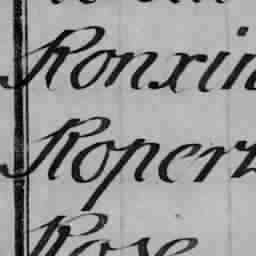 Ronxin
Roperz
Rose